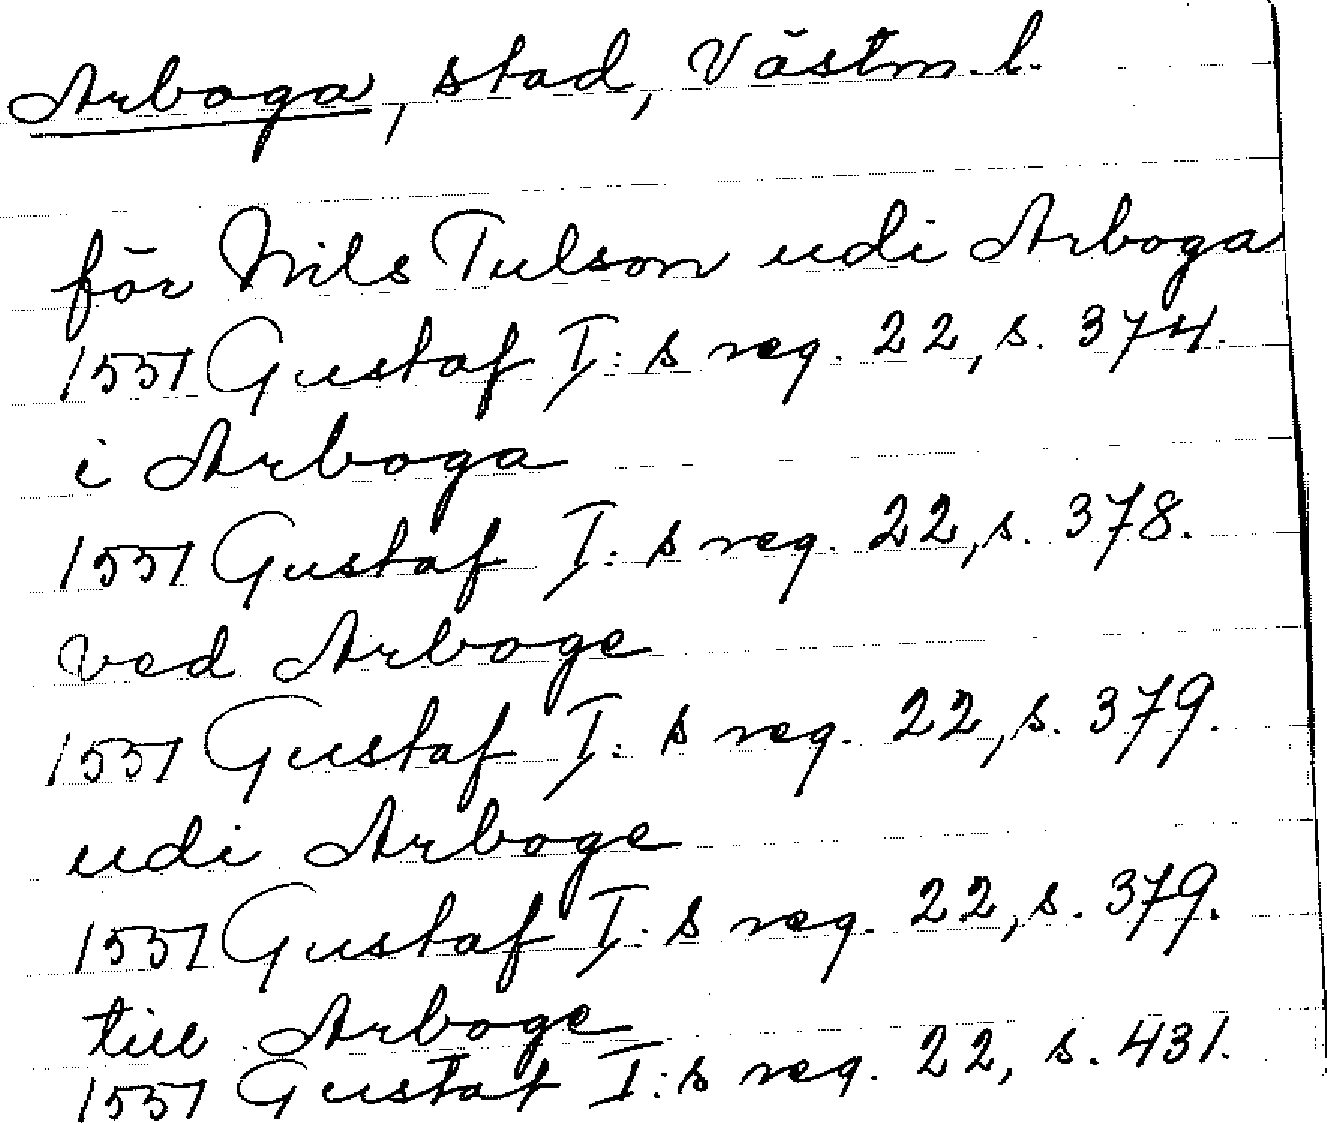 Arboga, stad, Västm. l.
för Nils Tulson udi Arboga
1551 Gustaf I:s reg. 22, s. 374.
i Arboga
1551 Gustaf I:s reg. 22, s. 378.
ved Arboge
1551 Gustaf I:s reg. 22, s. 379.
udi Arboge
1551 Gustaf I:s reg. 22, s. 379.
till Arboge
1551 Gustaf I:s reg. 22, s. 431.